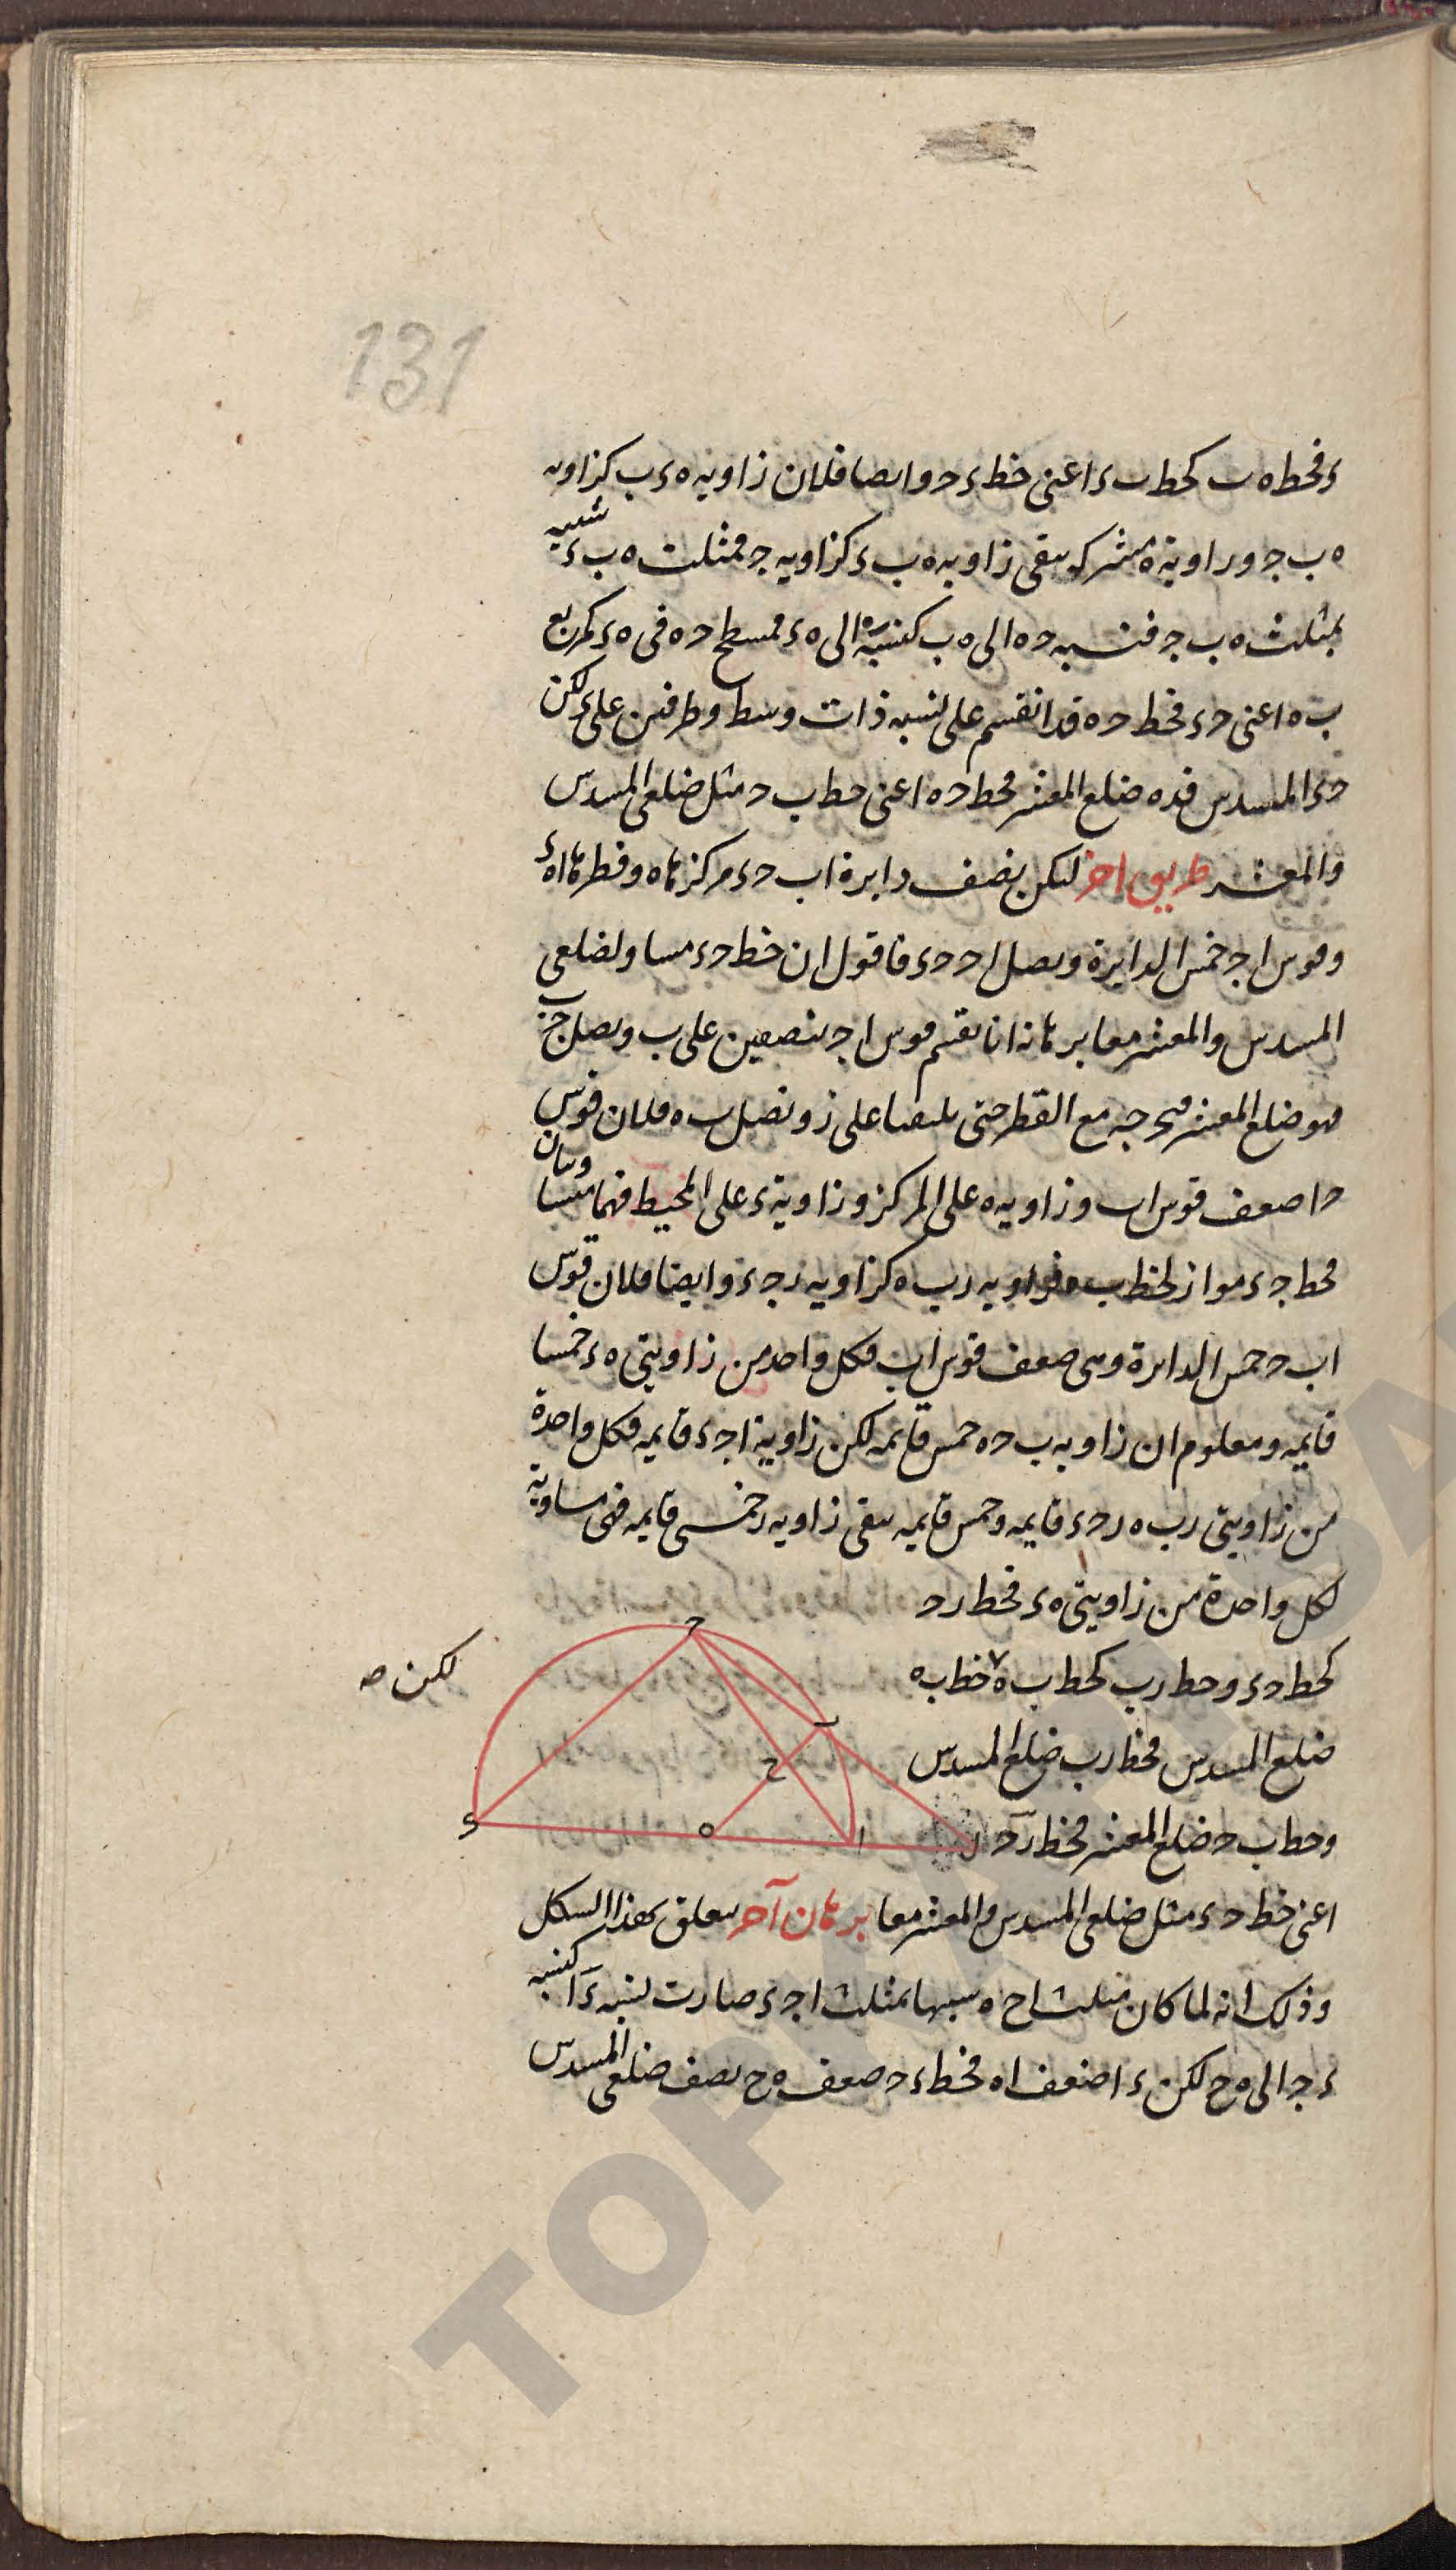 131
ء فخط ه ب كخط ب ء اعنى خط ء ح وايضا فلان زاويه ه ء ب كزاويه
ه ب ج وزاوية ه مشتركه يبقى زاويه ه ب ء كزاويه ج فمثلث ه ب ء شبيه
بمثلث ه ب ج فنسبه ح ه الى ه ب كنسبة ه الى ه ء فمسطح ح ه فى ه ء كمربع
ب ه اعنى ح ء فخط ح ه قد انقسم على نسبه ذات وسط وطرفين على ء لكن
ح ء المسدس فده ضلع المعشر فخط ح ه اعنى خط ب ح مثل ضلعى المسدس
والمعشر طريق اخر ليكن نصف دايرة اب ح ء مركزها ه وقطرها اه ء
وقوس ا ج خمس الدايرة ونصل ا ح ح ء فاقول ان خط ح ء مساو لضلعى
المسدس والمعشر معا برهانه انا نقسم قوس ا ج بنصفين على ب ونصل ج ب
فهو ضلع المعشر ونخرجه مع القطر حتى يلتقيا على ز ونصل ب ه فلان قوس
ح ا ضعف قوس اب وزاويه ه على المركز وزاوية ء على المحيط فهما متساويتان
فخط ج ء مواز لخط ب ه فزاويه ز ب ه كزاويه ز ج ء وايضا فلان قوس
اب ح خمس الدايرة وهى ضعف قوس اب فكل واحد من زاويتى ه ء خمسا
قايمه ومعلوم ان زاويه ب ح ه خمس قايمه لكن زاوية ا ج ء قايمه فكل واحدة
من زاويتى ز ب ه ز ح ء قايمه وخمس قايمه يبقى زاويه ز خمسى قايمه فهى مساوية
لكل واحدة من زاويتى ه ء فخط ز ح
كخط ح ء وخط ز ب كخط ب ه خط ب ه
لكن ص
ضلع المسدس فخط ز ب ضلع المسدس
وخط ب ح ضلع المعشر فخط ز ح
اعنى خط ح ء مثل ضلعى المسدس والمعشر معا برهان آخر يتعلق بهذا الشكل
وذلك انه لما كان مثلث ا ح ه شبيها بمثلث ا ج ء صارت نسبه ء ا كنسبه
ء ج الى ه ح لكن ء ا ضعف ا ه فخط ء ح ضعف ه ح نصف ضلعى المسدس
ح
ب
ح
ء
ه
ا
ز